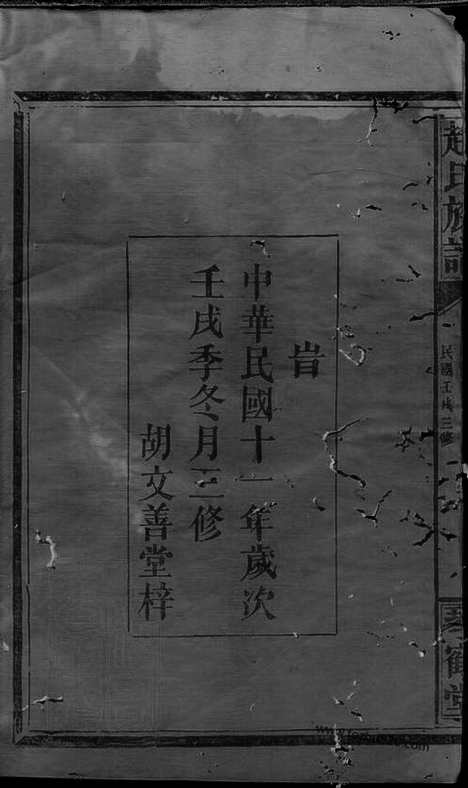 趙氏族譜
民國壬戌三修
琴鶴堂
旹
中華民國十一年歲次
壬戌季冬月三修
胡文善堂梓